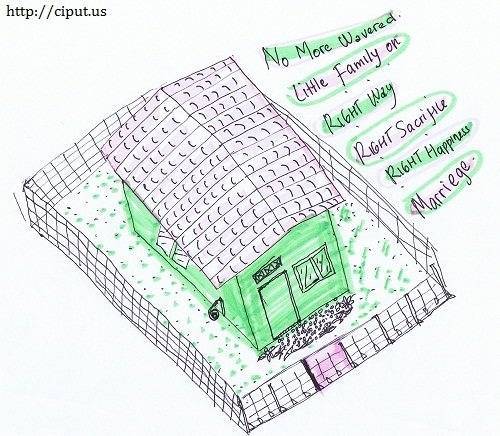 http://ciput.us
No More Wavered.
Little Family on
RigHT Way
RigHT Sacrifice
RigHT Happiness
Marriege